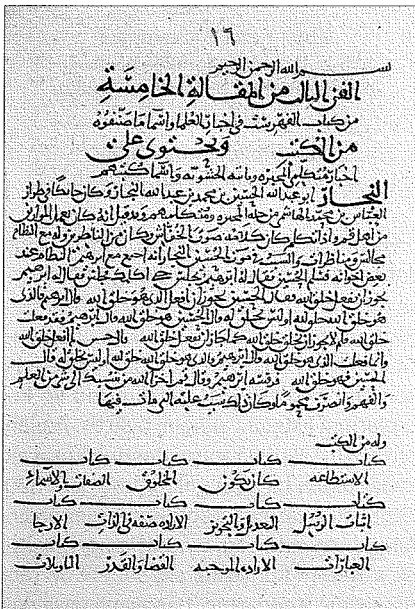 ١٦
بسم الله الرحمن الرحيم
الفن الثالث من المقالة الخامسة
من كتاب الفهرست في اخبار العلما واسما ما صنفوه
من الكتب ويحتوى على
اخبار متكلمى المجبره وبابيه الحشويه واسما كتبهم
النجار ابو عبد الله الحسين بن محمد بن عبد الله النجار وكان حايكا فى طراز
العباس بن محمد الهاشمى من جلة المجبره ومتكلميهم وقد قيل انه كان يعمل الموازين
من اهل قم واذا تكلم كان كلامه صوت الخفاش وكان من الناظرين وله مع النظام
مجالس ومناظرات والسبب فى موت الحسين النجار انه اجتمع مع ابراهيم النظام عند
بعض اخوانه فسلم الحسين فقال له ابرهيم تجلس حتى اكلمك فجلس فقال له ابرهيم
يجوز ان تفعل خلق الله فقال الحسين يجوز ان افعل الذى هو خلق الله قال ابرهيم فالذى
هو خلق الله خلق الله او ليس بخلق له قال الحسين هو خلق الله قال ابرهيم فقد فعلت
خلق الله فلم لا يجوز ان تخلق خلق الله كما جاز ان تفعل خلق الله قال الحسين لم افعل خلق الله
وانما فعلت الذى هو خلق الله قال ابرهيم والذى هو خلق الله خلق لله او ليس بخلق له قال
الحسين فهو خلق الله فرفسه ابرهيم وقال قم اخزا الله من ينسبك الى شى من العلم
والفهم وانصرف محموما وكان ذلك سبب علته التى مات فيها
وله من الكتب
كتاب كتاب كتاب كتاب
الاستطاعه كان يكون المخلوق الصفات والاسماء
كتاب كتاب كتاب كتاب
اثبات الرسل العدل والتجوير الاراده صفه فى الذات الارجا
كتاب كتاب كتاب كتاب
الاراده الموجبه القضا والقدر التاويلات